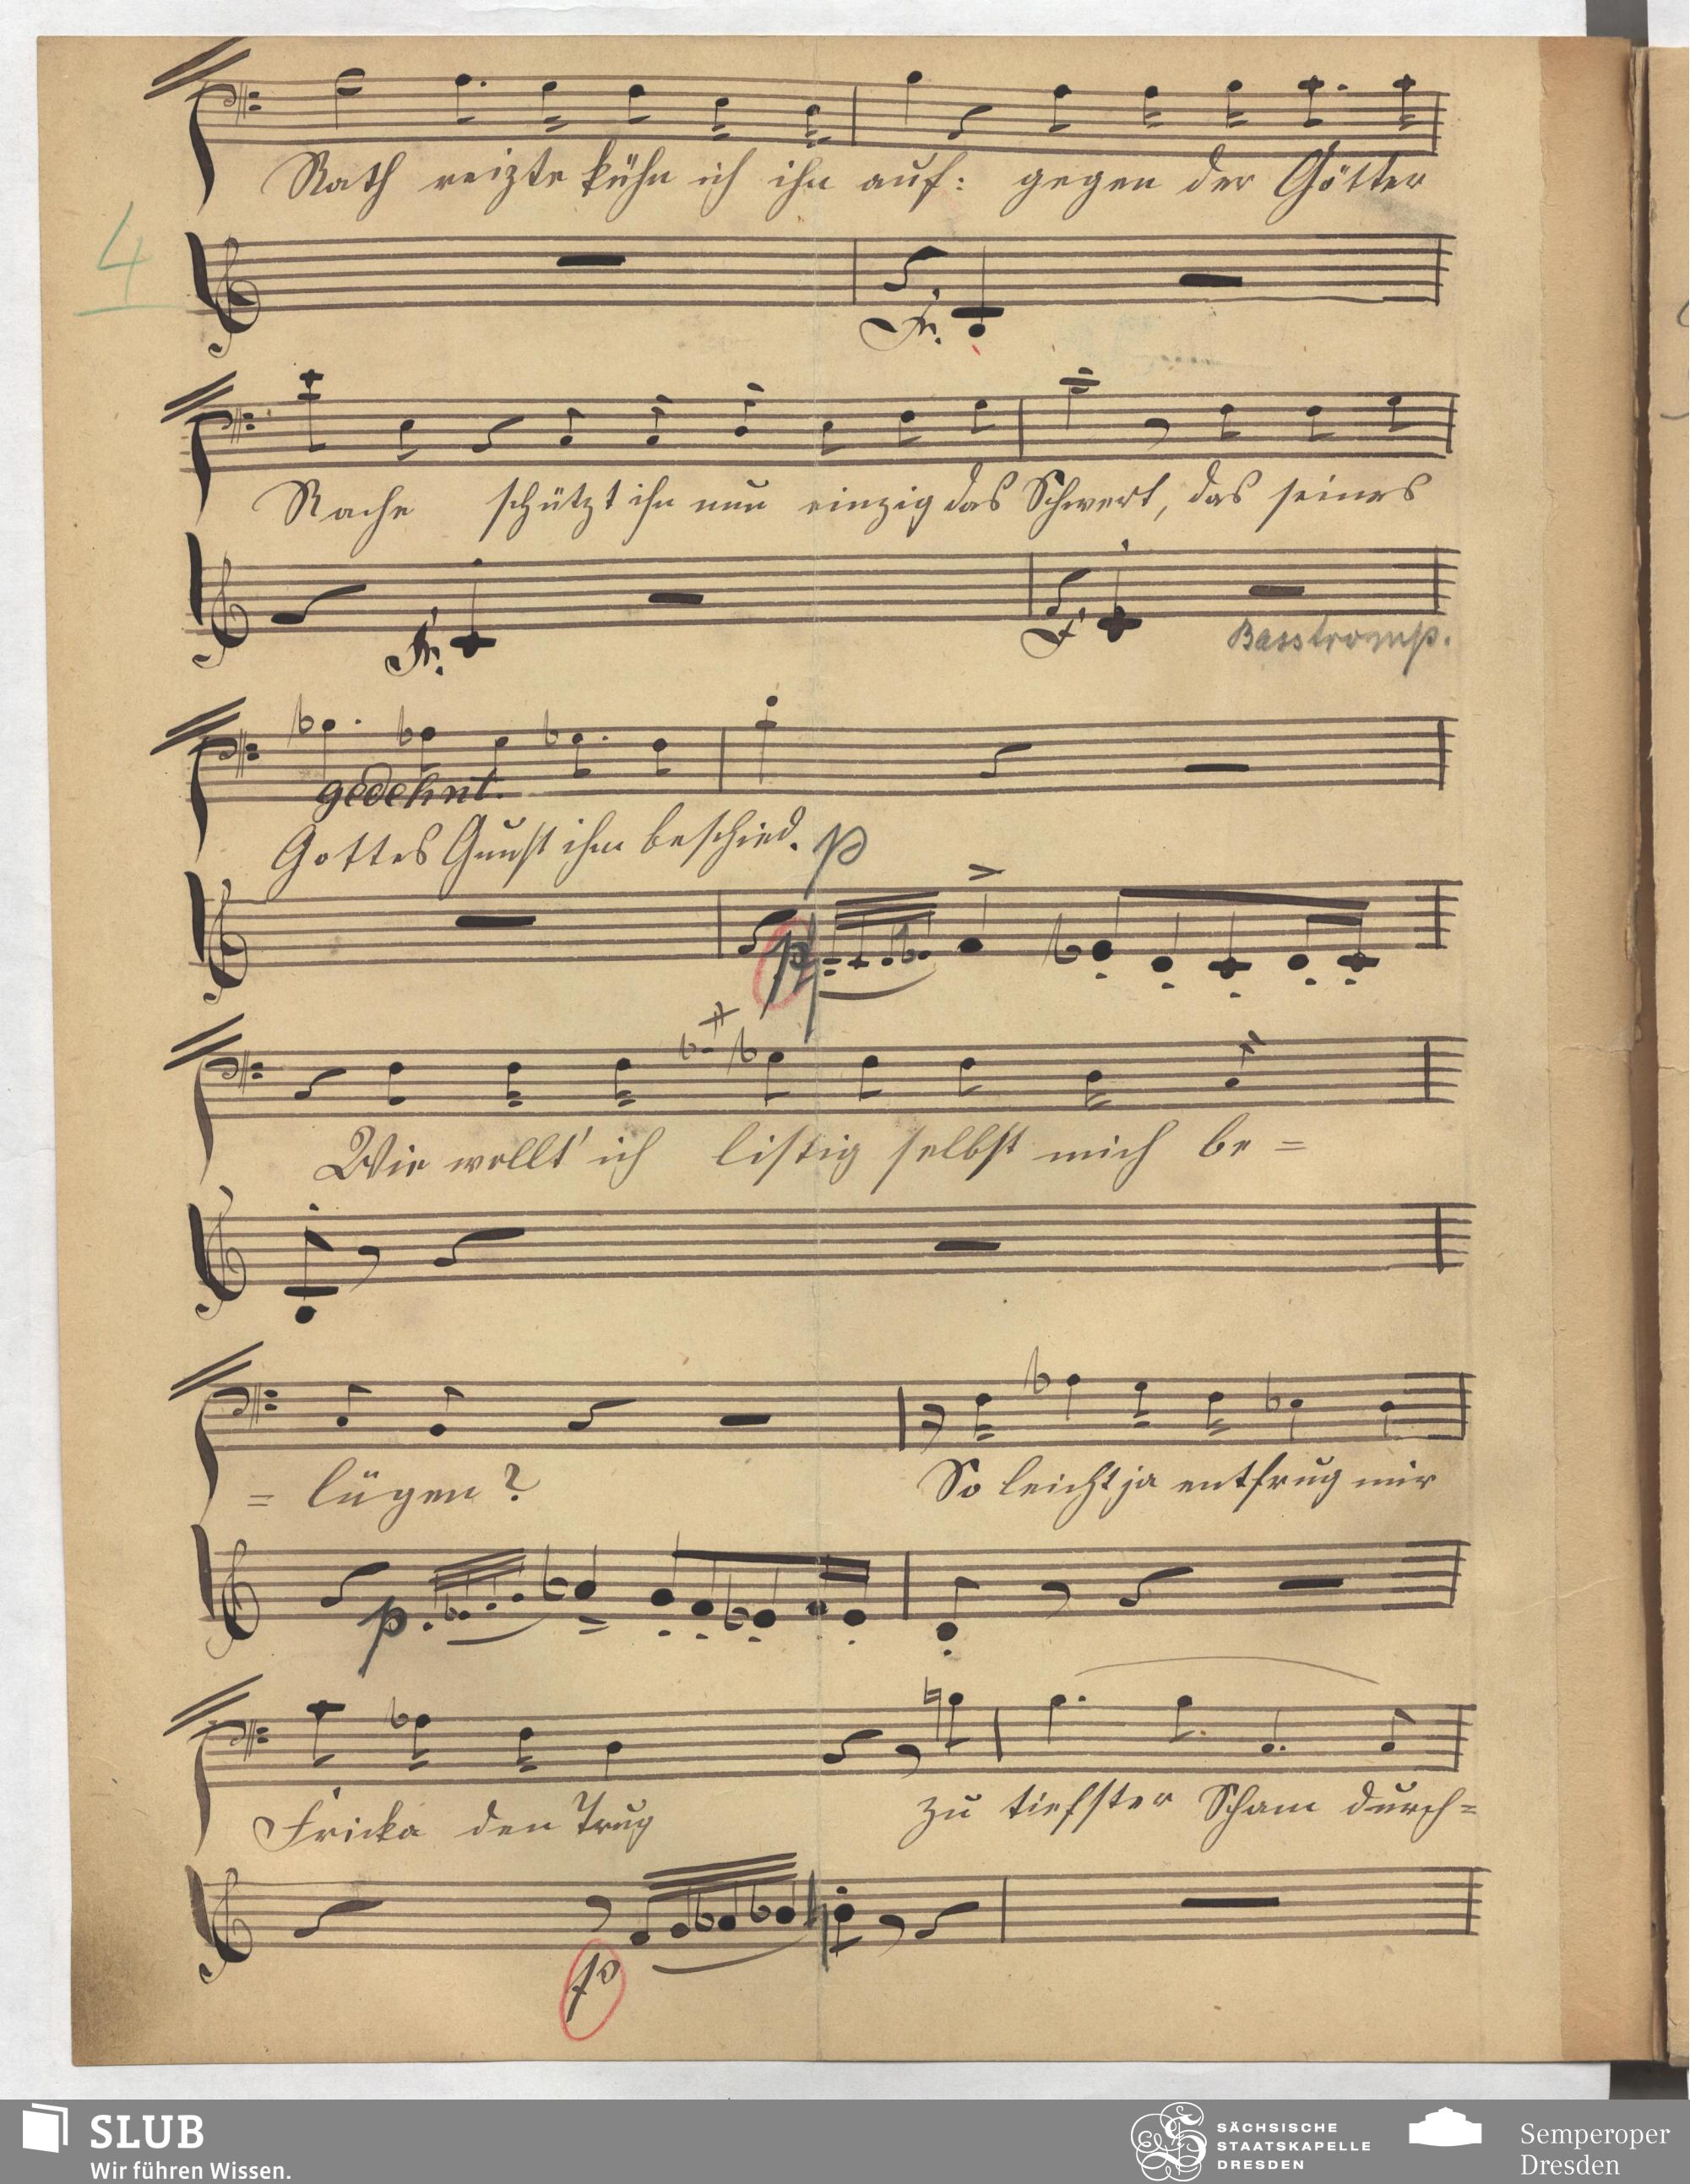 Rath reizte kühn ich ihn auf: gegen der Götter
4
Fr.
Rache schützt ihn nun einzig das Schwert, das seines
Fr.
Fr.
Basstromp.
gedehnt.
Gottes Gunst ihm beschied.
p
p
Wie wollt' ich listig selbst mich be =
= lügen?
So leicht ja entfrug mir
p.
Fricka den Trug
zu tiefster Scham durch=
p
SLUB
Wir führen Wissen.
SÄCHSISCHE
STAATSKAPELLE
DRESDEN
Semperoper
Dresden